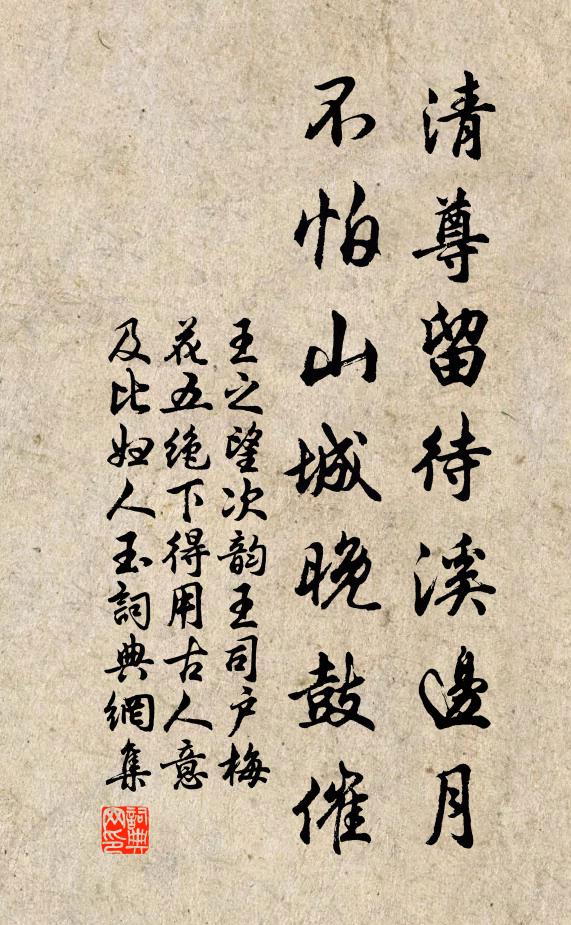 清尊留待溪邊月
不怕山城晚鼓催
王之望次韵王司户梅
花五绝下得用古人意
及比妇人玉詞典網集
詞典网印